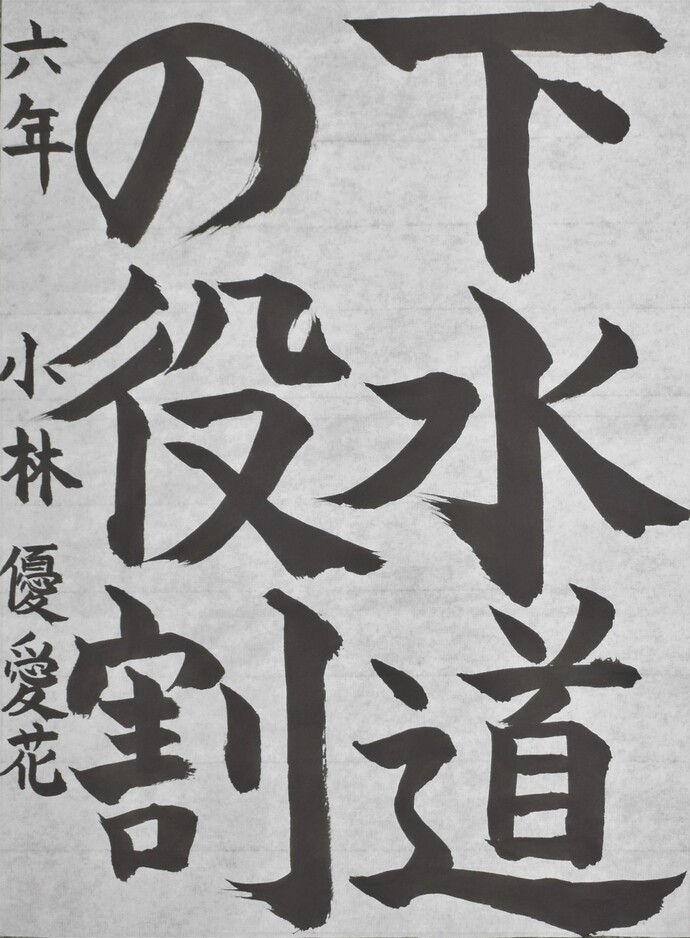 下水道
の役割
六年 小林 優愛花